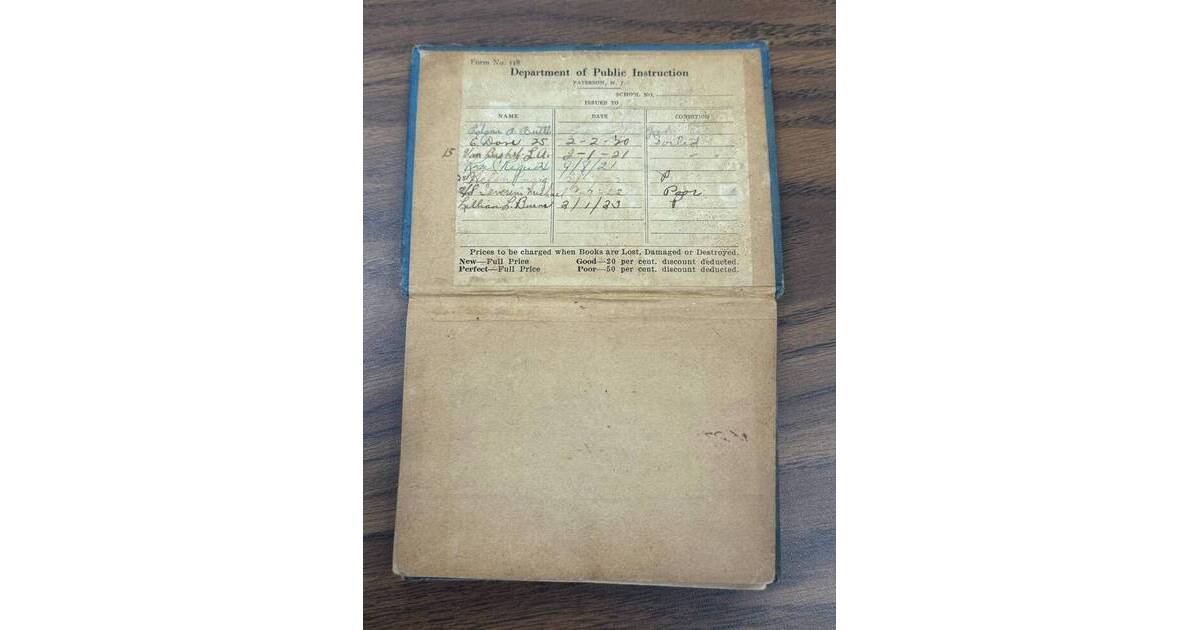 Form No. 118
Department of Public Instruction
PATERSON, N. J.
SCHOOL NO.
ISSUED TO
NAME DATE CONDITION
A.
E. Dove 25 2-2-20 Soiled
15 2-1-21 " "
9/8/21
P
Severin Poor
Lillian L. Burns 2/1/23 P
Prices to be charged when Books are Lost, Damaged or Destroyed.
New—Full Price Good—20 per cent. discount deducted.
Perfect—Full Price Poor—50 per cent. discount deducted.